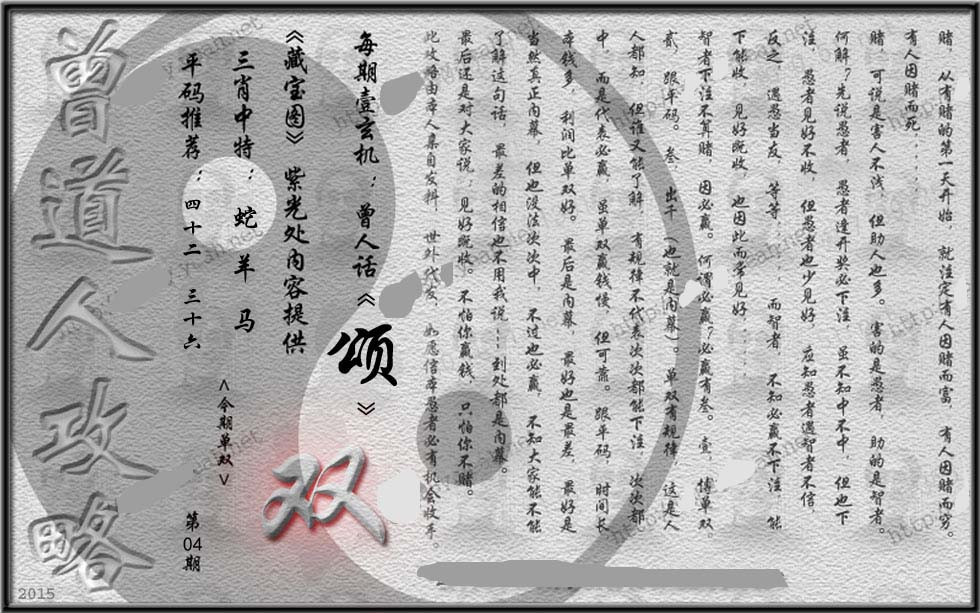 赌， 从有赌的第一天开始， 就注定有人因赌而富， 有人因赌而穷。
有人因赌而死......
赌， 可说是害人不浅， 但助人也多。 害的是愚者， 助的是智者。
何解？先说愚者， 愚者逢开奖必下注 虽不知中不中， 但也下
注， 愚者见好不收， 但愚者也少见好 应知愚者遇智者不信，
反之， 遇愚当友， 等等...... 而智者， 不知必赢不下注 能
下能收， 见好既收， 也因此而常见好......
智者下注不算赌， 因必赢。 何谓必赢？必赢有叁。 壹， 博单双，
贰， 跟平码。 叁， 出千 （也就是内幕）。 单双有规律， 这是人
人都知 但谁又能了解， 有规律不代表次次都能下注， 次次都
中， 而是代表必赢， 虽单双赢钱慢， 但可靠。 跟平码， 时间长
本钱多， 利润比单双好。 最后是内幕， 最好也是最差， 最好是
当然真正内幕， 但也没法次次中， 不过也必赢， 不知大家能不能
了解这句话， 最差的相信也不用我说...到处都是内幕。
最后还是对大家说；见好既收。 不怕你赢钱， 只怕你不赌。
此攻略由本人集自发料， 世外代发， 如愿信本愚者必有机会收手。
每期壹玄机： 曾人话《 颂 》
《藏宝图》 紫光处内容提供
双
三肖中特： 蛇 羊 马
<今期单双>
平码推荐： 四十二 三十六
第04期
曾道人攻略
2015